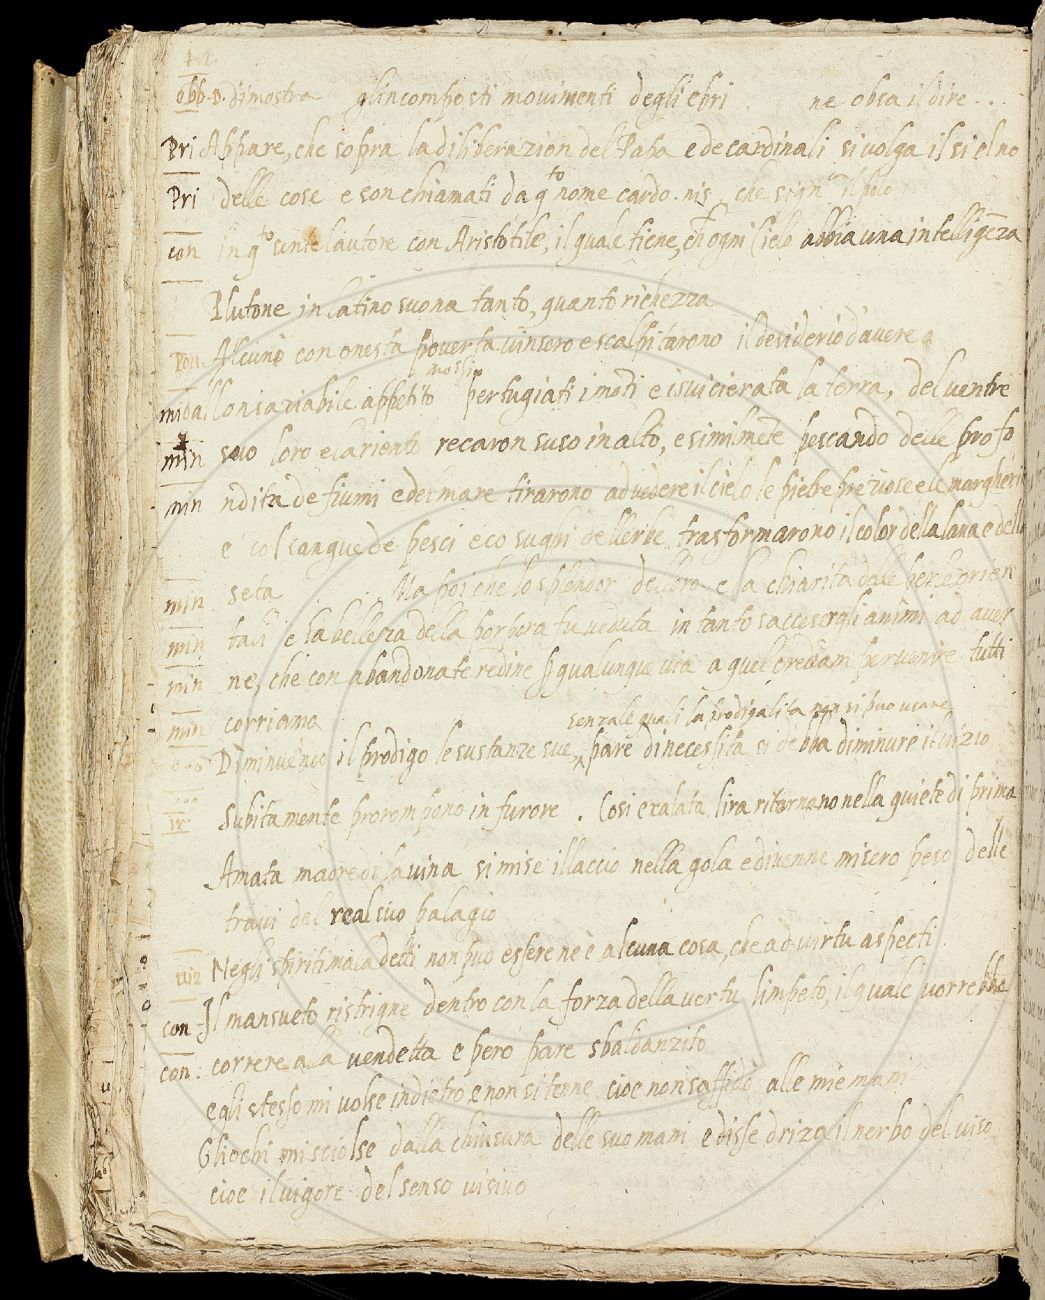 obb. 3. dimostra glincomposti movimenti degli ebri ne obsa il dire . .
Pri Appare, che sopra la diliberazion del Papa e de cardinali si volga il si el no
Pri delle cose e son chiamati da qto nome cardo . nis, che sign il polo
con in qto sente l'autore con Aristotile, il quale tiene, ch ogni Cielo abbia una intelligēza
Plutone in latino suona tanto, quanto richezza
con. Alcuni con onesta poverta vinsero e scalpitarono il desiderio d'avere
mossi
mi dallonsaziabile appetito pertugiati i moti e isvicierata la terra, del ventre
min suo loro e larienti recaron suso in alto, e similmēte pescando delle profo
min ndita de fiumi e del mare tirarono ad vedere il cielo le pietre preziose e le margheri
e col sangue de pesci e co sughi dellerbe trasformarono il color della lana e della
min seta Ma poi che lo splendor delloro e la chiarita dale perle orien
min tali e la bellezza della porpora fu veduta in tanto s'accesergli animi ad aver
min ne, che con abandonate redine p qualunque via a quel crediam pervenire tutti
min corriamo
senza le quali la prodigalita non si puo usare
Diminuendo il prodigo le sustanze sue, pare di necessita si debba diminuire il vizio
Subitamente prorompono in furore . Cosi exalata lira ritornano nella quiete di prima
Amata madre di Lavina si mise illaccio nella gola e divenne misero peso delle
travi del real suo palagio
Negli spiriti maladetti non puo essere ne è alcuna cosa, che ad virtu aspecti
con Il mansueto ristrigne dentro con la forza della vertu limpeto, il quale vorrebbe
con: correre ala vendetta e pero pare sbaldanzito
egli stesso mi volse indietro e non si tenne cioe non s'affidò alle mie mani
Gliochi mi sciolse dalla chiusura delle suo mani e disse drizo il nerbo del viso
cioe il vigore del senso visivo